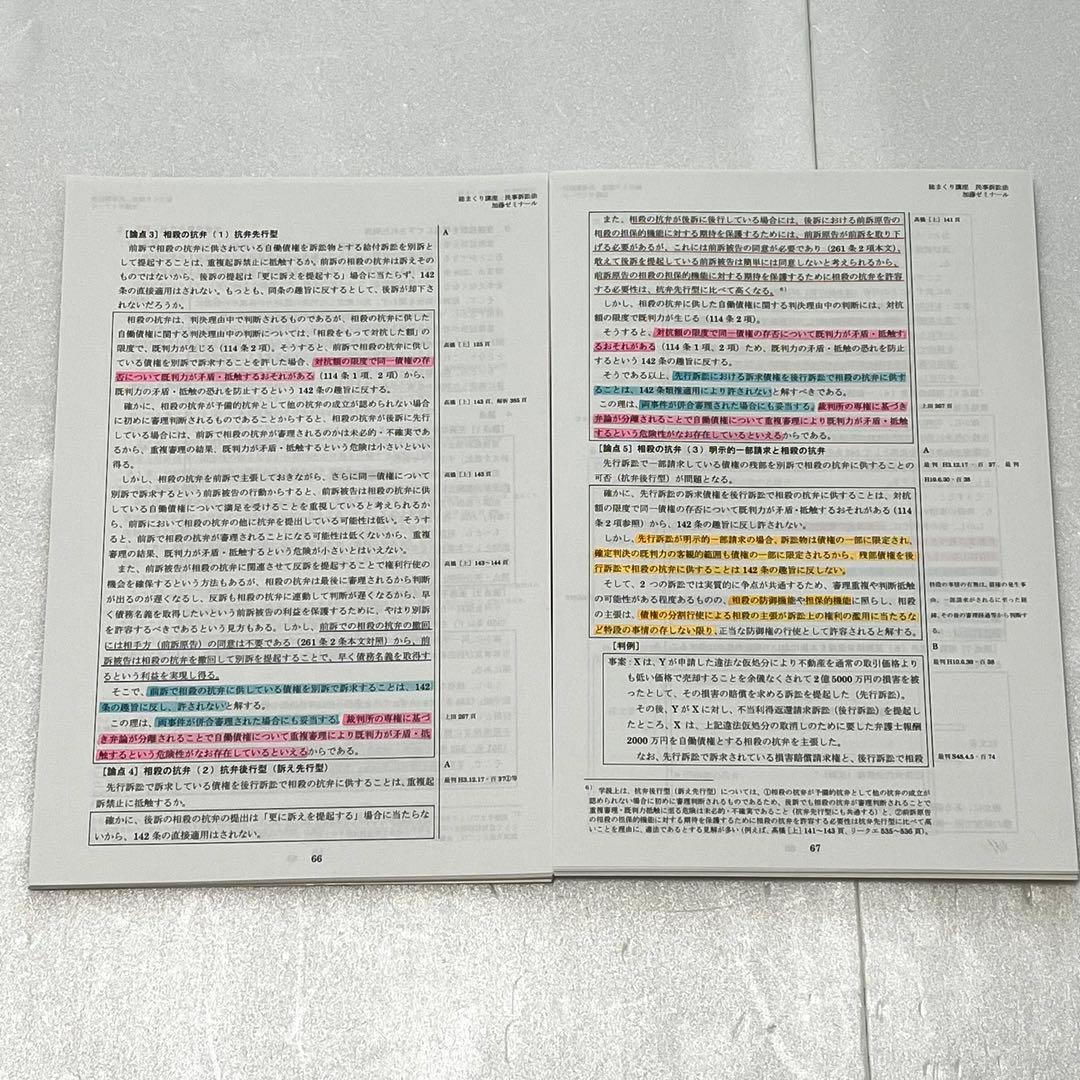 総まくり講座 民事訴訟法
加藤ゼミナール
[論点3] 相殺の抗弁（1）抗弁先行型
A
前訴で相殺の抗弁に供されている自働債権を訴訟物とする給付訴訟を別訴と
して提起することは、重複起訴禁止に抵触するか。前訴の相殺の抗弁は訴えその
ものではないから、後訴の提起は「更に訴えを提起する」場合に当たらず、142
条の直接適用はされない。もっとも、同条の趣旨に反するとして、後訴が却下さ
れないだろうか。
相殺の抗弁は、判決理由中で判断されるものであるが、相殺の抗弁に供した
自働債権に関する判決理由中の判断については、「相殺をもって対抗した額」の
限度で、既判力が生じる（114 条 2 項）。そうすると、前訴で相殺の抗弁に供し
高橋［上］125 頁
ている債権を別訴で訴求することを許した場合、対抗額の限度で同一債権の存
否について既判力が矛盾・抵触するおそれがある（114 条 1 項、2 項）から、
既判力の矛盾・抵触の恐れを防止するという 142 条の趣旨に反する。
確かに、相殺の抗弁が予備的抗弁として他の抗弁の成立が認められない場合
高橋［上］143 頁、解析 385 頁
に初めて審理判断されるものであることからすると、相殺の抗弁が後訴に先行
している場合には、前訴で相殺の抗弁が審理されるのかは未必的・不確実であ
るから、重複審理の結果、既判力が矛盾・抵触するという危険は小さいといい
得る。
しかし、相殺の抗弁を前訴で主張しておきながら、さらに同一債権について
高橋［上］143 頁
別訴で訴求するという前訴被告の行動からすると、前訴被告は相殺の抗弁に供
している自働債権について満足を受けることを重視していると考えられるか
ら、前訴において相殺の抗弁の他に抗弁を提出している可能性は低い。そうす
ると、前訴で相殺の抗弁が審理されることになる可能性は低くないから、重複
審理の結果、既判力が矛盾・抵触するという危険が小さいとはいえない。
また、前訴被告が抗弁に関連させて反訴を提起することで権利行使の
高橋［上］143～144 頁
機会を確保するという方法もあるが、相殺の抗弁は最後に審理されるから判断
が出るのが遅くなるし、反訴も相殺の抗弁に連動して判断が遅くなるから、早
く債務名義を取得したいという前訴被告の利益を保護するために、やはり別訴
を許容するべきであるという見方もある。しかし、前訴での相殺の抗弁の撤回
には相手方（前訴原告）の同意は不要である（261 条 2 条本文対照）から、前
訴被告は相殺の抗弁を撤回して別訴を提起することで、早く債務名義を取得す
るという利益を実現し得る。
そこで、前訴で相殺の抗弁に供している債権を別訴で訴求することは、142
条の趣旨に反し、許されないと解する。
この理は、両事件が併合審理された場合にも妥当する。裁判所の専権に基づ
上田 267 頁
き弁論が分離されることで自働債権について重複審理により既判力が矛盾・抵
触するという危険性がなお存在しているといえるからである。
[論点4] 相殺の抗弁（2）抗弁後行型（訴え先行型）
A
先行訴訟で訴求している債権を後行訴訟で相殺の抗弁に供することは、重複起
最判 H3.12.17・百 37②
訴禁止に抵触するか。
確かに、後訴の抗弁の提出は「更に訴えを提起する」場合に当たらな
いから、142 条の直接適用はされない。
66
総まくり講座 民事訴訟法
加藤ゼミナール
また、相殺の抗弁が後訴に後行している場合には、後訴における前訴原告の
高橋［上］141 頁
相殺の担保的機能に対する期待を保護するためには、前訴原告が前訴を取り下
げる必要があるが、これには前訴被告の同意が必要であり（261 条 2 項本文）、
敢えて後訴を提起している前訴被告は簡単には同意しないと考えられるから、
前訴原告の相殺の担保的機能に対する期待を保護するために相殺の抗弁を許容
する必要性は、抗弁先行型に比べて高くなる。6)
しかし、相殺の抗弁に供した自働債権に関する判決理由中の判断には、対抗
額の限度で既判力が生じる（114 条 2 項）。
そうすると、対抗額の限度で同一債権の存否について既判力が矛盾・抵触す
るおそれがある（114 条 1 項、2 項）ため、既判力の矛盾・抵触の恐れを防止
するという 142 条の趣旨に反する。
そうである以上、先行訴訟における訴求債権を後行訴訟で相殺の抗弁に供す
ることは、142 条類推適用により許されないと解すべきである。
この理は、両事件が併合審理された場合にも妥当する。裁判所の専権に基づき
上田 267 頁
弁論が分離されることで自働債権について重複審理により既判力が矛盾・抵触
するという危険性がなお存在しているといえるからである。
[論点5] 相殺の抗弁（3）明示的一部請求と相殺の抗弁
A
先行訴訟で一部請求している債権の残部を別訴で相殺の抗弁に供することの
最判 H3.12.17・百 37、最判
可否（抗弁後行型）が問題となる。
H10.6.30・百 38
確かに、先行訴訟の訴求債権を後行訴訟で相殺の抗弁に供することは、対抗
額の限度で同一債権の存否について既判力が矛盾・抵触するおそれがある（114
条 2 項参照）から、142 条の趣旨に反し許されない。
しかし、先行訴訟が明示的一部請求の場合、訴訟物は債権の一部に限定され、
確定判決の既判力の客観的範囲も債権の一部に限定されるから、残部債権を後
行訴訟で相殺の抗弁に供することは 142 条の趣旨に反しない。
そして、2 つの訴訟では実質的に争点が共通するため、審理重複や判断抵触
特段の事情の有無は、債権の発生事
の可能性がある程度あるものの、相殺の防御機能や担保的機能に照らし、相殺
由、一部請求がされるに至った経
の主張は、債権の分割行使による相殺の主張が訴訟上の権利の濫用に当たるな
緯、その後の審理経過等から判断す
ど特段の事情の存しない限り、正当な防御権の行使として許容されると解する。
る。
[判例]
B
事案：X は、Y が申請した違法な仮処分により不動産を通常の取引価格より
最判 H10.6.30・百 38
も低い価格で売却することを余儀なくされて 2 億 5000 万円の損害を被
ったとして、その損害の賠償を求める訴訟を提起した（先行訴訟）。
その後、Y が X に対し、不当利得返還請求訴訟（後行訴訟）を提起し
たところ、X は、上記違法仮処分の取消しのために要した弁護士報酬
2000 万円を自働債権とする相殺の抗弁を主張した。
なお、先行訴訟で訴求されている損害賠償請求権と、後行訴訟で相殺
最判 S48.4.5・百 74
6) 学説上は、抗弁後行型（訴え先行型）については、①相殺の抗弁が予備的抗弁として他の抗弁の成立が
認められない場合に初めて審理判断されるものであるため、後訴でも相殺の抗弁が審理判断されることで
重複審理・既判力抵触に至る危険は未必的・不確実であること（抗弁先行型にも共通する）と、②前訴原告
の相殺の担保的機能に対する期待を保護するために相殺の抗弁を許容する必要性は抗弁先行型に比べて高
いことを理由に、適法であるとする見解が多い（例えば、高橋［上］141～143 頁、リークエ 535～536 頁）。
67